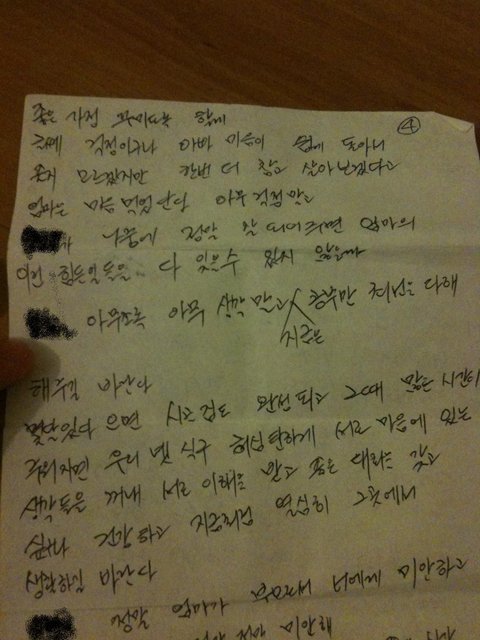 ④
좋은 가정 꾸미도록 할께
걱정이구나 아빠 마음이 쉽게 돌아
모르겠지만 한번 더 참고 살아보겠다고
엄마는 마음 먹었단다 아무 걱정 말고
나중에 정말 잘 되어주면 엄마의
이런 힘든일들을 다 잊을수 있지 않을까
아무쪼록 아무 생각 말고 공부만 최선을 다해
지금은
해주길 바란다
몇달있다 오면 시골집도 완성되고 그때 많은 시간이
주어지면 우리 넷 식구 허심탄하게 서로 마음에 있는
생각들을 꺼내 서로 이해를 받고 좋은 대화를 갖고
건강하고 지금처럼 열심히 그곳에서
생활하길 바란다
정말 엄마가 부모로써 너에게 미안하고
정말 미안해